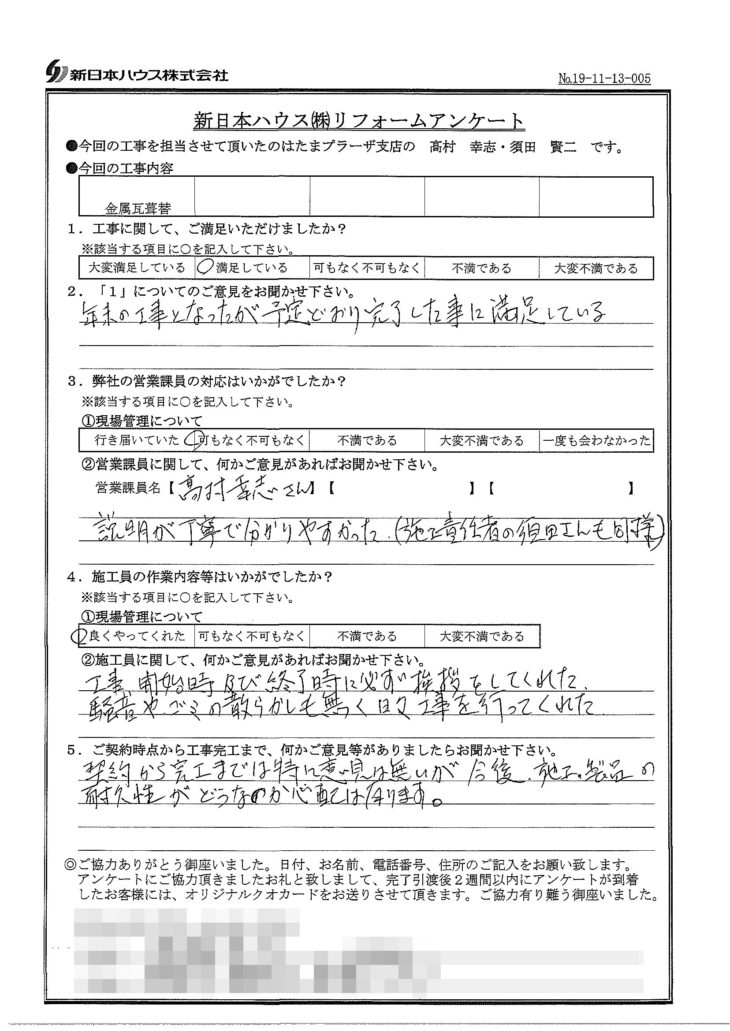 新日本ハウス株式会社
No.19-11-13-005
新日本ハウス㈱リフォームアンケート
●今回の工事を担当させて頂いたのはたまプラーザ支店の 髙村 幸志・須田 賢二 です。
●今回の工事内容
金属瓦葺替
1．工事に関して、ご満足いただけましたか？
※該当する項目に○を記入して下さい。
大変満足している ○満足している 可もなく不可もなく 不満である 大変不満である
2．「1」についてのご意見をお聞かせ下さい。
年末の工事となったが予定どおり完了した事に満足している
3．弊社の営業課員の対応はいかがでしたか？
※該当する項目に○を記入して下さい。
①現場管理について
行き届いていた 可もなく不可もなく 不満である 大変不満である 一度も会わなかった
②営業課員に関して、何かご意見があればお聞かせ下さい。
営業課員名【髙村幸志さん】【 】【 】
説明が丁寧で分かりやすかった.(施工責任者の須田さんも同様)
4．施工員の作業内容等はいかがでしたか？
※該当する項目に○を記入して下さい。
①現場管理について
良くやってくれた 可もなく不可もなく 不満である 大変不満である
②施工員に関して、何かご意見があればお聞かせ下さい。
工事開始時及び終了時に必ず挨拶をしてくれた.
騒音やゴミの散らかしも無く日々工事を行ってくれた
5．ご契約時点から工事完工まで、何かご意見等がありましたらお聞かせ下さい。
契約から完工までは特に意見は無いが今後、施工製品の
耐久性がどうなのか心配は有ります。
◎ご協力ありがとう御座いました。日付、お名前、電話番号、住所のご記入をお願い致します。
アンケートにご協力頂きましたお礼と致しまして、完了引渡後2週間以内にアンケートが到着
したお客様には、オリジナルクオカードをお送りさせて頂きます。ご協力有り難う御座いました。